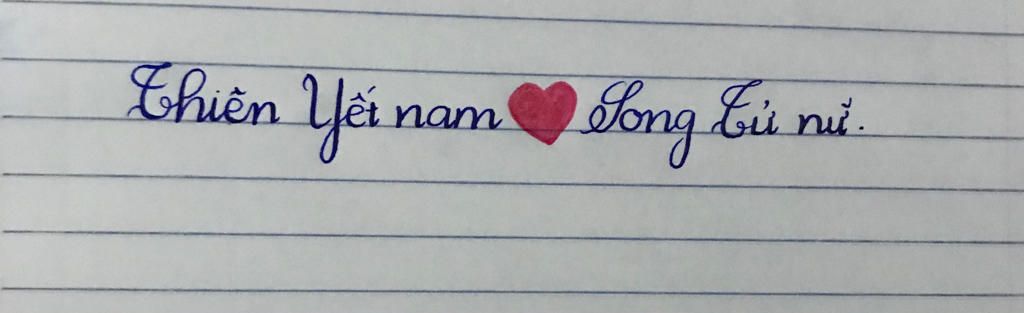 Thiên Yết nam ❤ Song Tử nữ.